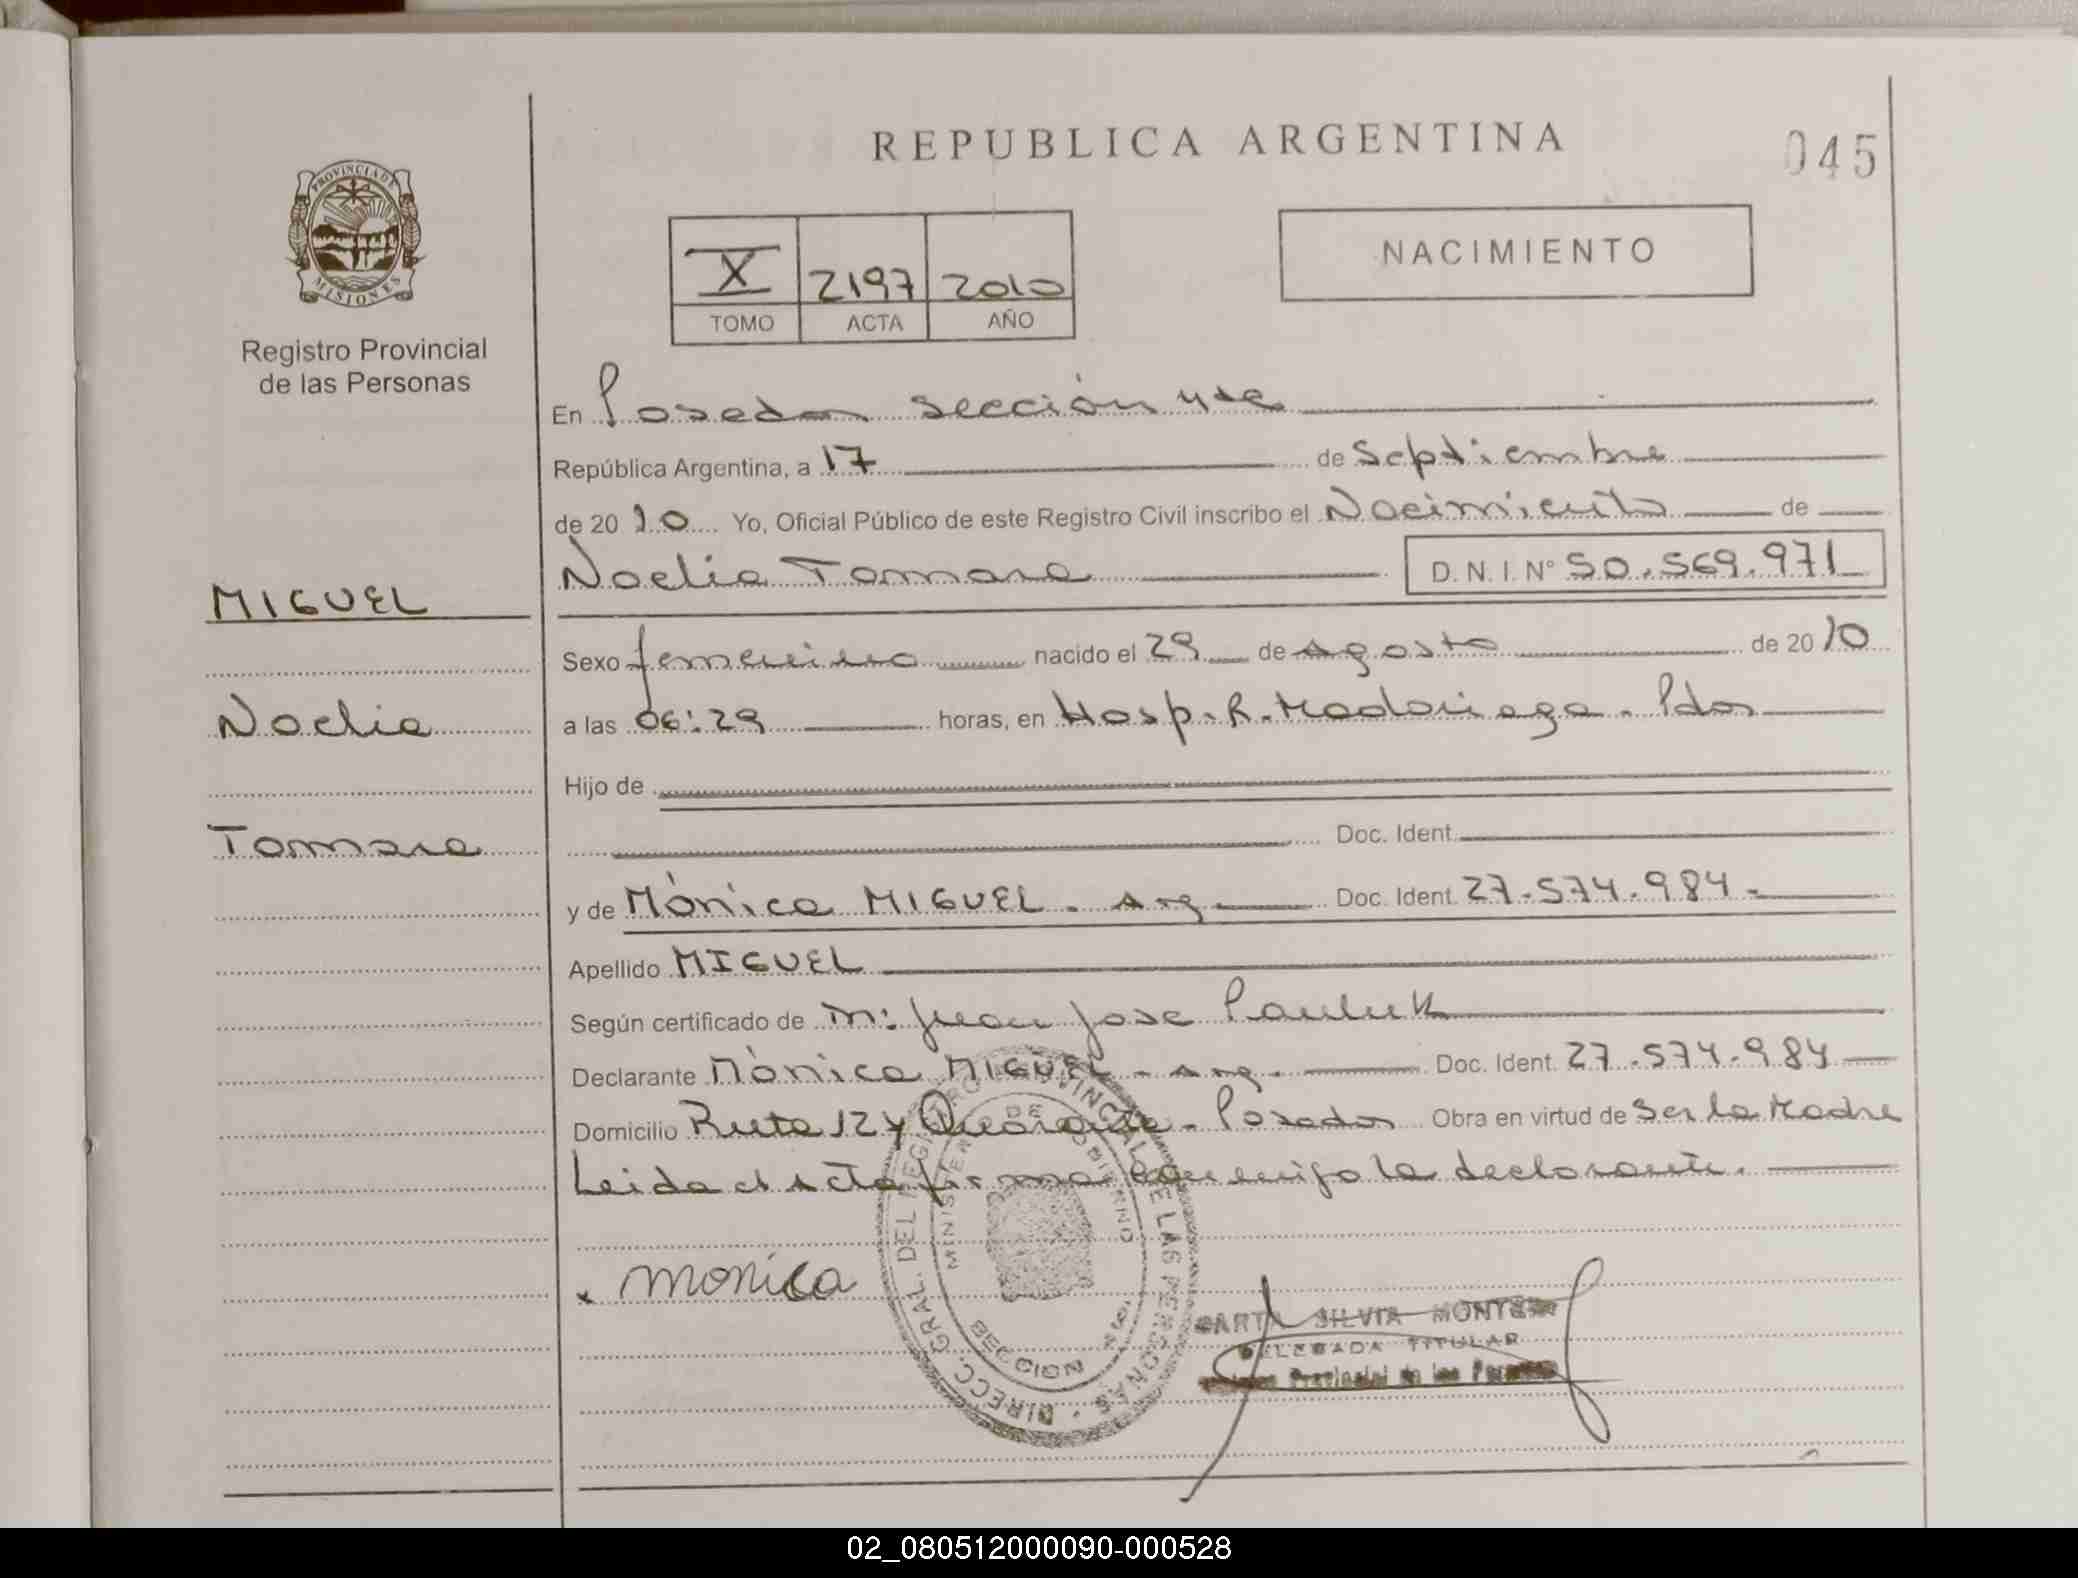 REPUBLICA ARGENTINA
045
PROVINCIA DE
MISIONES
Registro Provincial
de las Personas
X 2197 2010
TOMO ACTA AÑO
NACIMIENTO
En Posadas sección 4ta
República Argentina, a 17 de Septiembre
de 2010 Yo, Oficial Público de este Registro Civil inscribo el Nacimiento de
Noelia Tamara D.N.I. Nº 50.569.971
MIGUEL
Noelia
Tamara
Sexo femenino nacido el 29 de Agosto de 2010
a las 06:29 horas, en Hosp. R. Madariaga. Pdas
Hijo de
Doc. Ident.
y de Mónica MIGUEL. Arg. Doc. Ident. 27.574.984.
Apellido MIGUEL
Según certificado de m: Juan Jose Pauluk
Declarante Mónica MIGUEL - Arg. Doc. Ident. 27.574.984
Domicilio Ruta 12 y - Posadas Obra en virtud de Ser la Madre
Leida el Acta firma conmigo la declarante.
monica
DIRECC. GRAL. DEL REGISTRO PROVINCIAL DE LAS PERSONAS
MINISTERIO DE GOBIERNO
SECCION
SILVIA MONTE
DELEGADA TITULAR
Provincial de las Personas
02_080512000090-000528